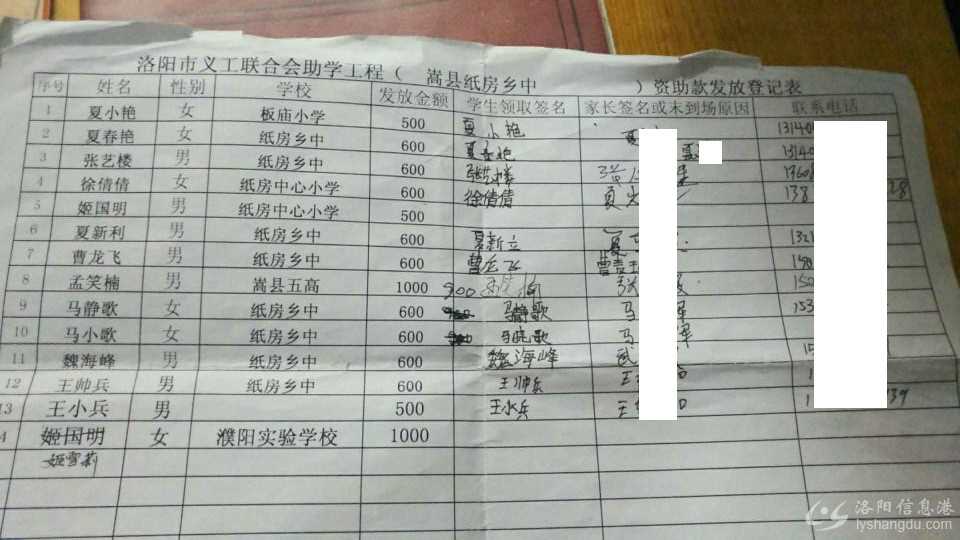 洛阳市义工联合会助学工程( 嵩县纸房乡中 )资助款发放登记表
序号 姓名 性别 学校 发放金额 学生领取签名 家长签名或未到场原因 联系电话
1 夏小艳 女 板庙小学 500 夏小艳 13140
2 夏春艳 女 纸房乡中 600 夏春艳 夏 13140
3 张艺楼 男 纸房乡中 600 张艺楼 1360
4 徐倩倩 女 纸房中心小学 600 徐倩倩 夏 138 28
5 姬国明 男 纸房中心小学 500
6 夏新利 男 纸房乡中 600 夏新立 夏 132
7 曹龙飞 男 纸房乡中 600 曹龙飞 曹
8 孟笑楠 男 嵩县五高 1000 900 张 150
9 马静歌 女 纸房乡中 600 马静歌 马 军 153
10 马小歌 女 纸房乡中 600 马晓歌 马 军
11 魏海峰 男 纸房乡中 600 魏海峰 1
12 王帅兵 男 纸房乡中 600 王帅兵 王 1
13 王小兵 男 500 王水兵 王 1 39
4 姬国明 女 濮阳实验学校 1000
姬雪莉
洛阳信息港
lyshangdu.com